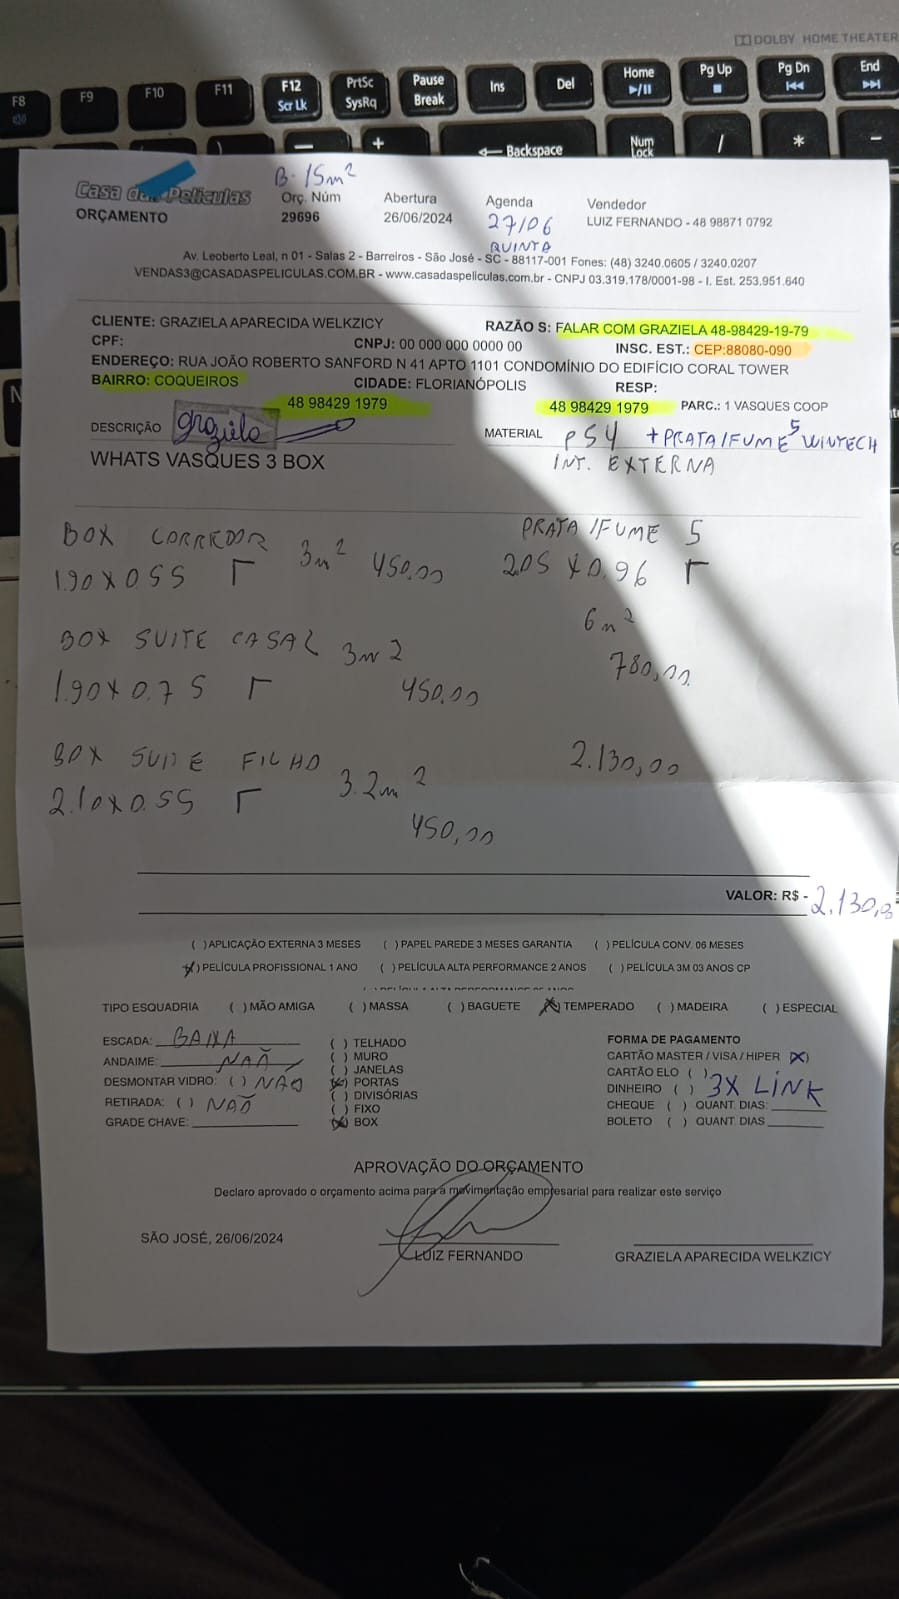 DOLBY HOME THEATER
F8 F9 F10 F11 F12 PrtSc Pause Ins Del Home Pg Up Pg Dn End
Scr Lk SysRq Break
Backspace Num Lock / * -
B. 15m²
Casa das Películas Orç. Núm Abertura Agenda Vendedor
ORÇAMENTO 29696 26/06/2024 27/06 LUIZ FERNANDO - 48 98871 0792
QUINTA
Av. Leoberto Leal, n 01 - Salas 2 - Barreiros - São José - SC - 88117-001 Fones: (48) 3240.0605 / 3240.0207
VENDAS3@CASADASPELICULAS.COM.BR - www.casadaspeliculas.com.br - CNPJ 03.319.178/0001-98 - I. Est. 253.951.640
CLIENTE: GRAZIELA APARECIDA WELKZICY RAZÃO S: FALAR COM GRAZIELA 48-98429-19-79
CPF: CNPJ: 00 000 000 0000 00 INSC. EST.: CEP:88080-090
ENDEREÇO: RUA JOÃO ROBERTO SANFORD N 41 APTO 1101 CONDOMÍNIO DO EDIFÍCIO CORAL TOWER
BAIRRO: COQUEIROS CIDADE: FLORIANÓPOLIS RESP:
48 98429 1979 48 98429 1979 PARC.: 1 VASQUES COOP
DESCRIÇÃO graziela MATERIAL PS4 + PRATA/FUME 5 WINTECH
WHATS VASQUES 3 BOX INT. EXTERNA
BOX CORREDOR 3m² 450,00 PRATA/FUME 5
1.90 X 0.55 2.05 X 0.96
6m²
BOX SUITE CASAL 3m2 780,00
1.90 X 0.75 450,00
BOX SUITE FILHO 3.2m² 2.130,00
2.10 X 0.55 450,00
VALOR: R$ - 2.130,
( )APLICAÇÃO EXTERNA 3 MESES ( )PAPEL PAREDE 3 MESES GARANTIA ( )PELÍCULA CONV. 06 MESES
(X)PELÍCULA PROFISSIONAL 1 ANO ( )PELÍCULA ALTA PERFORMANCE 2 ANOS ( )PELÍCULA 3M 03 ANOS CP
TIPO ESQUADRIA ( )MÃO AMIGA ( )MASSA ( )BAGUETE (X)TEMPERADO ( )MADEIRA ( )ESPECIAL
ESCADA: BAIXA ( ) TELHADO FORMA DE PAGAMENTO
ANDAIME: NAÃO ( ) MURO CARTÃO MASTER / VISA / HIPER (X)
( ) JANELAS CARTÃO ELO ( )
DESMONTAR VIDRO: ( ) NAO (X) PORTAS DINHEIRO ( ) 3X LINK
RETIRADA: ( ) NAÕ ( ) DIVISÓRIAS CHEQUE ( ) QUANT. DIAS:
( ) FIXO
GRADE CHAVE: (X) BOX BOLETO ( ) QUANT. DIAS
APROVAÇÃO DO ORÇAMENTO
Declaro aprovado o orçamento acima para a movimentação empresarial para realizar este serviço
SÃO JOSÉ, 26/06/2024
LUIZ FERNANDO GRAZIELA APARECIDA WELKZICY